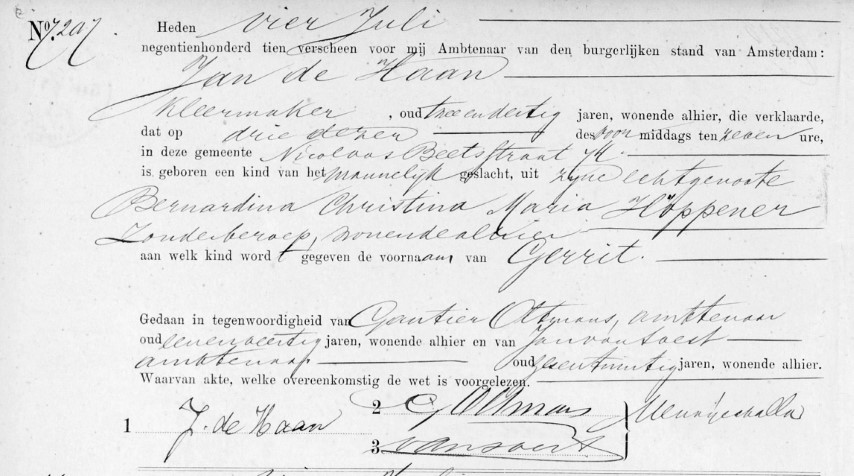 No. 7207
Heden vier Juli
negentienhonderd tien verscheen voor mij Ambtenaar van den burgerlijken stand van Amsterdam:
Jan de Haan
kleermaker, oud twee en dertig jaren, wonende alhier, die verklaarde,
dat op drie dezer des voor middags ten zeven ure,
in deze gemeente Nicolaas Beetsstraat
is geboren een kind van het mannelijk geslacht, uit zijne echtgenoote
Bernardina Christina Maria Höppener
zonder beroep, wonende alhier
aan welk kind wordt gegeven de voornaam van Gerrit.
Gedaan in tegenwoordigheid van Gautier Oltmans, ambtenaar
oud jaren, wonende alhier en van Jan van Soest
ambtenaar oud jaren, wonende alhier.
Waarvan akte, welke overeenkomstig de wet is voorgelezen.
1 J. de Haan
2 G Oltmans
3 van Soest